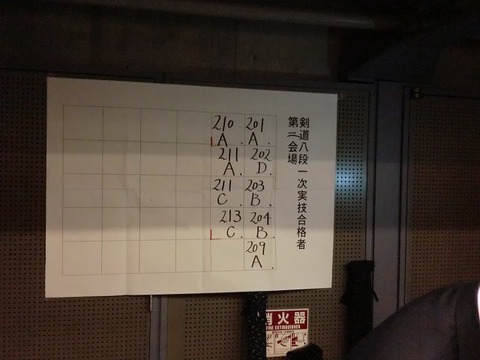 剣道八段一次実技合格者
第二会場
201
A
202
D
203
B
204
B
209
A
210
A
211
A
211
C
213
C
消火器
FIRE EXTINGUISHER